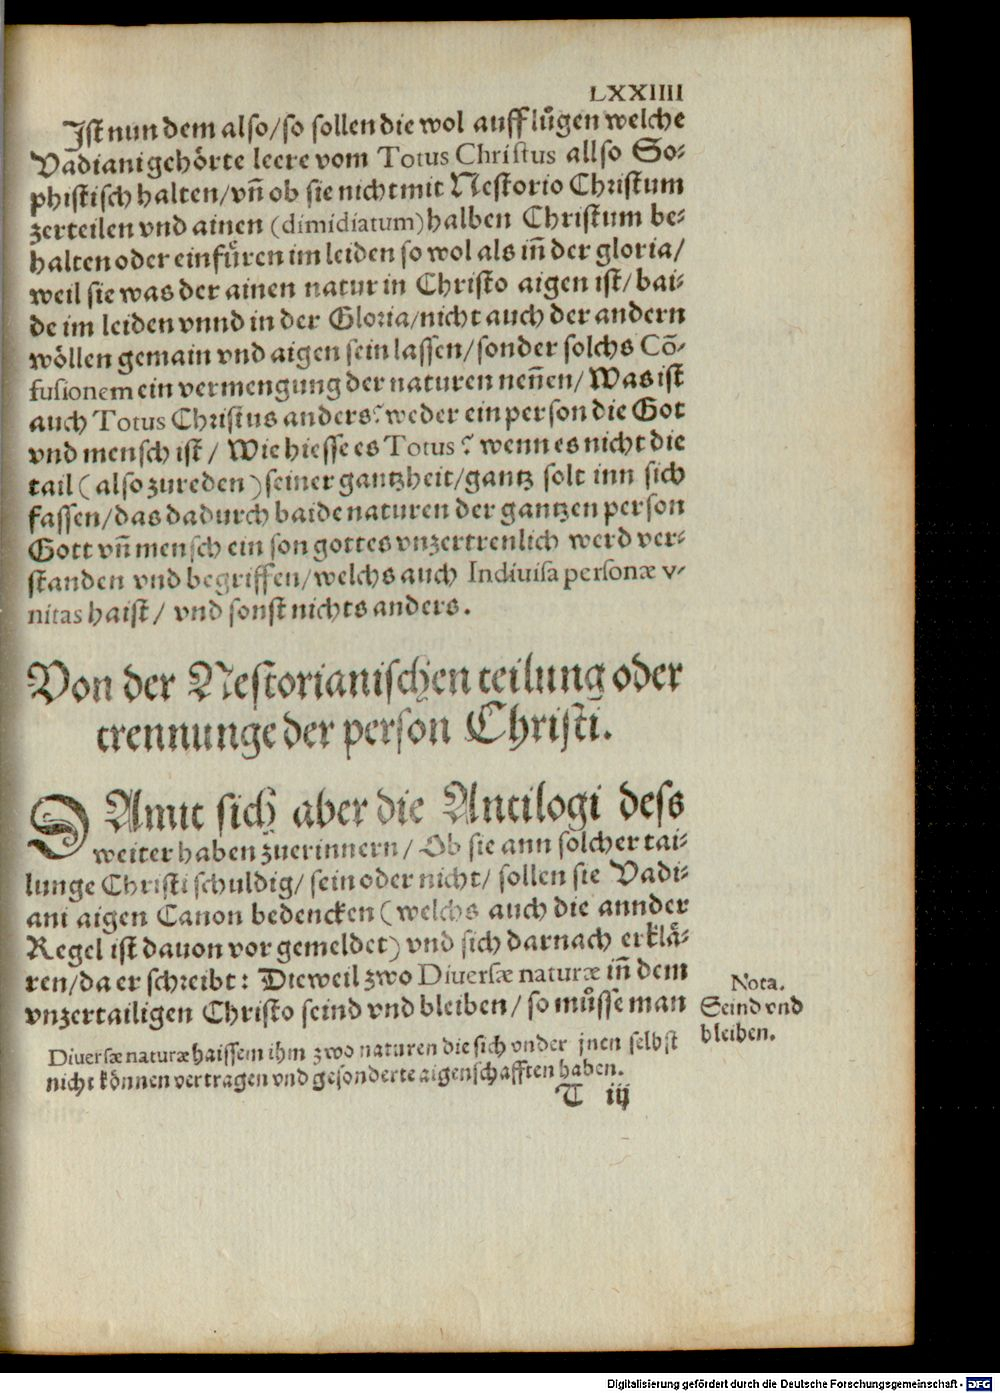 LXXIIII
Ist nun dem also/so sollen die wol auff lůgen welche
Vadiani gehörte leere vom Totus Christus allso So-
phistisch halten/vñ ob sie nicht mit Nestorio Christum
zerteilen vnd ainen (dimidiatum) halben Christum be-
halten oder einfůren im leiden so wol als iñ der gloria/
weil sie was der ainen natur in Christo aigen ist/bai-
de im leiden vnnd in der Gloria/nicht auch der andern
wöllen gemain vnd aigen sein lassen/sonder solchs Cõ-
fusionem ein vermengung der naturen neñen/Was ist
auch Totus Christus anders? weder ein person die Got
vnd mensch ist/ Wie hiesse es Totus? wenn es nicht die
tail (also zureden) seiner gantzheit/gantz solt inn sich
fassen/das dadurch baide naturen der gantzen person
Gott vñ mensch ein son gottes vnzertrenlich werd ver-
standen vnd begriffen/welchs auch Indiuisa personæ v-
nitas haist/ vnd sonst nichts anders.
Von der Nestorianischen teilung oder
trennunge der person Christi.
DAmit sich aber die Antilogi dess
weiter haben zuerinnern/ Ob sie ann solcher tai-
lunge Christi schuldig/ sein oder nicht/ sollen sie Vadi-
ani aigen Canon bedencken (welchs auch die annder
Regel ist dauon vor gemeldet) vnd sich darnach erklä-
ren/da er schreibt: Dieweil zwo Diuersæ naturæ iñ dem
vnzertailigen Christo seind vnd bleiben/ so můsse man
Nota.
Seind vnd
bleiben.
Diuersæ naturæ haissem ihm zwo naturen die sich vnder jnen selbst
nicht können vertragen vnd gesonderte aigenschafften haben.
T iij
Digitalisierung gefördert durch die Deutsche Forschungsgemeinschaft - DFG